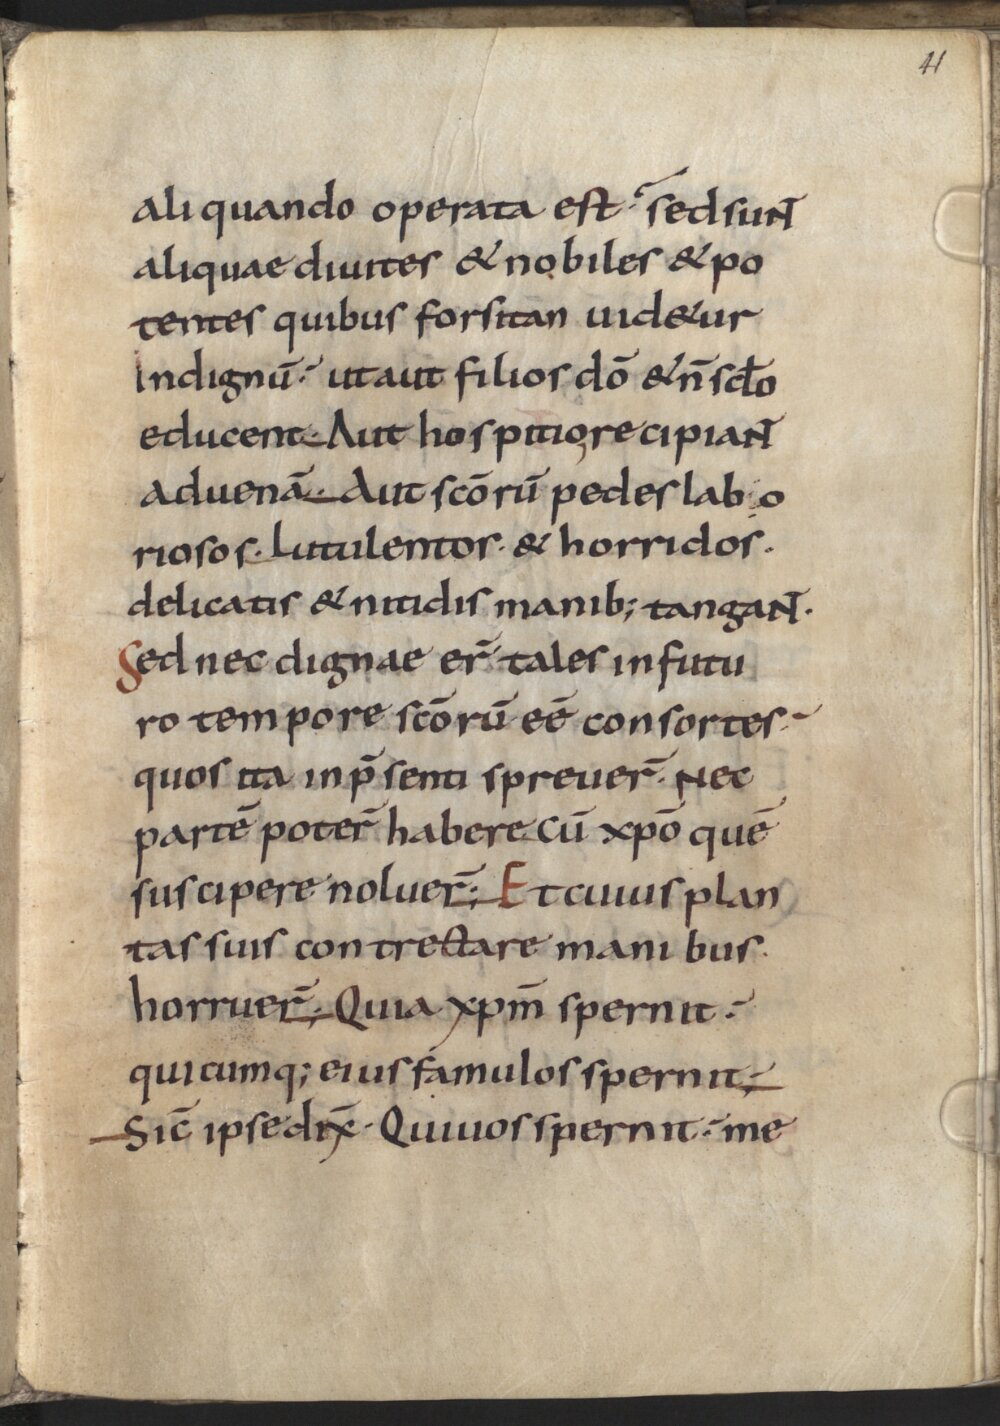 41
aliquando operata est· sed sunt̄
aliquae diuites & nobiles & po
tentes quibus forsitan uid&ur
Indignū· ut aut filios dō & n̄ scło
educent· Aut hospitio recipiant̄
aduenā· Aut scōrū pedes labo
riosos· Lutulentos· & horridos·
delicatis & nitidis manib; tangant̄·
Sed nec dignae er̄ tales in futu
ro tempore scōrū eē consortes·
quos ita in p̄senti spreuer̄· Nec
partē poter̄ habere cū xp̄o quē
suscipere noluer̄; Et cuius plan
tas suis contrectare manibus·
horruer̄; Quia xpm̄ spernit·
quicumq; eius famulos spernit;
Sic̄ ipse dix̄· Qui uos spernit· me